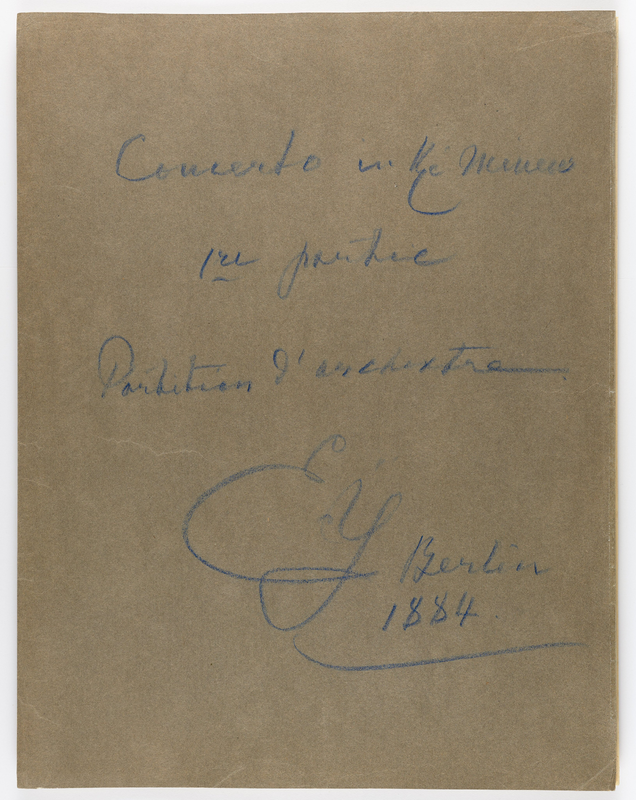 Concerto in Ré Mineur
1re partie
Partition d'orchestre
EY Berlin
1884.